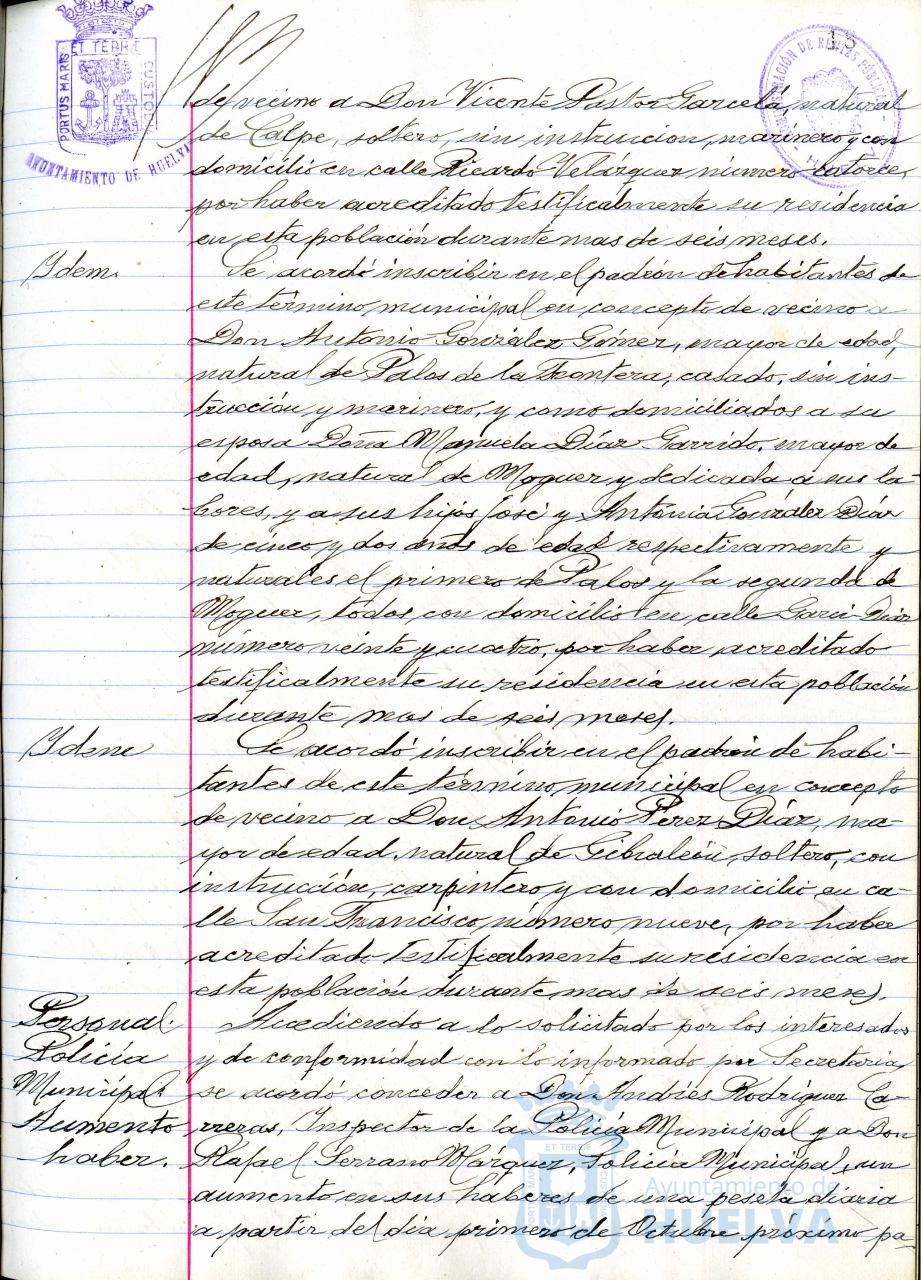 15
PORTUS MARIS ET TERRE CUSTODIA
AYUNTAMIENTO DE HUELVA
de vecino a Don Vicente Pastor Garcelá, natural
de Calpe, soltero, sin instrucion, marinero y con
domicilio en calle Ricardo Velázquez número catorce,
por haber acreditado testificalmente su residencia
en esta población durante mas de seis meses.
Idem.
Se acordó inscribir en el padrón de habitantes de
este término municipal en concepto de vecino a
Don Antonio González Gómez, mayor de edad,
natural de Palos de la Frontera, casado, sin ins-
trucción y marinero, y como domiciliados a su
esposa Doña Manuela Díaz Garrido, mayor de
edad, natural de Moguer y dedicada a sus la-
bores, y a sus hijos José y Antonia González Díaz
de cinco y dos años de edad respectivamente y
naturales el primero de Palos y la segunda de
Moguer, todos con domicilio en calle Garci-Díaz
número veinte y cuatro, por haber acreditado
testificalmente su residencia en esta población
durante mas de seis meses.
Idem
Se acordó inscribir en el padrón de habi-
tantes de este término municipal en concepto
de vecino a Don Antonio Pérez Díaz, ma-
yor de edad, natural de Gibraleón, soltero, con
instrucción, carpintero y con domicilio en ca-
lle San Francisco número nueve, por haber
acreditado testificalmente su residencia en
esta población durante mas de seis meses.
Personal.
Policía
Municipal.
Aumento
haber.
Accediendo a lo solicitado por los interesados
y de conformidad con lo informado por Secretaria,
se acordó conceder a Don Andrés Rodríguez Ca-
rreras, Inspector de la Policía Municipal y a Don
Rafael Serrano Márquez, Policía Municipal, un
aumento en sus haberes de una peseta diaria
a partir del día primero de Octubre próximo pa-
Ayuntamiento de
HUELVA